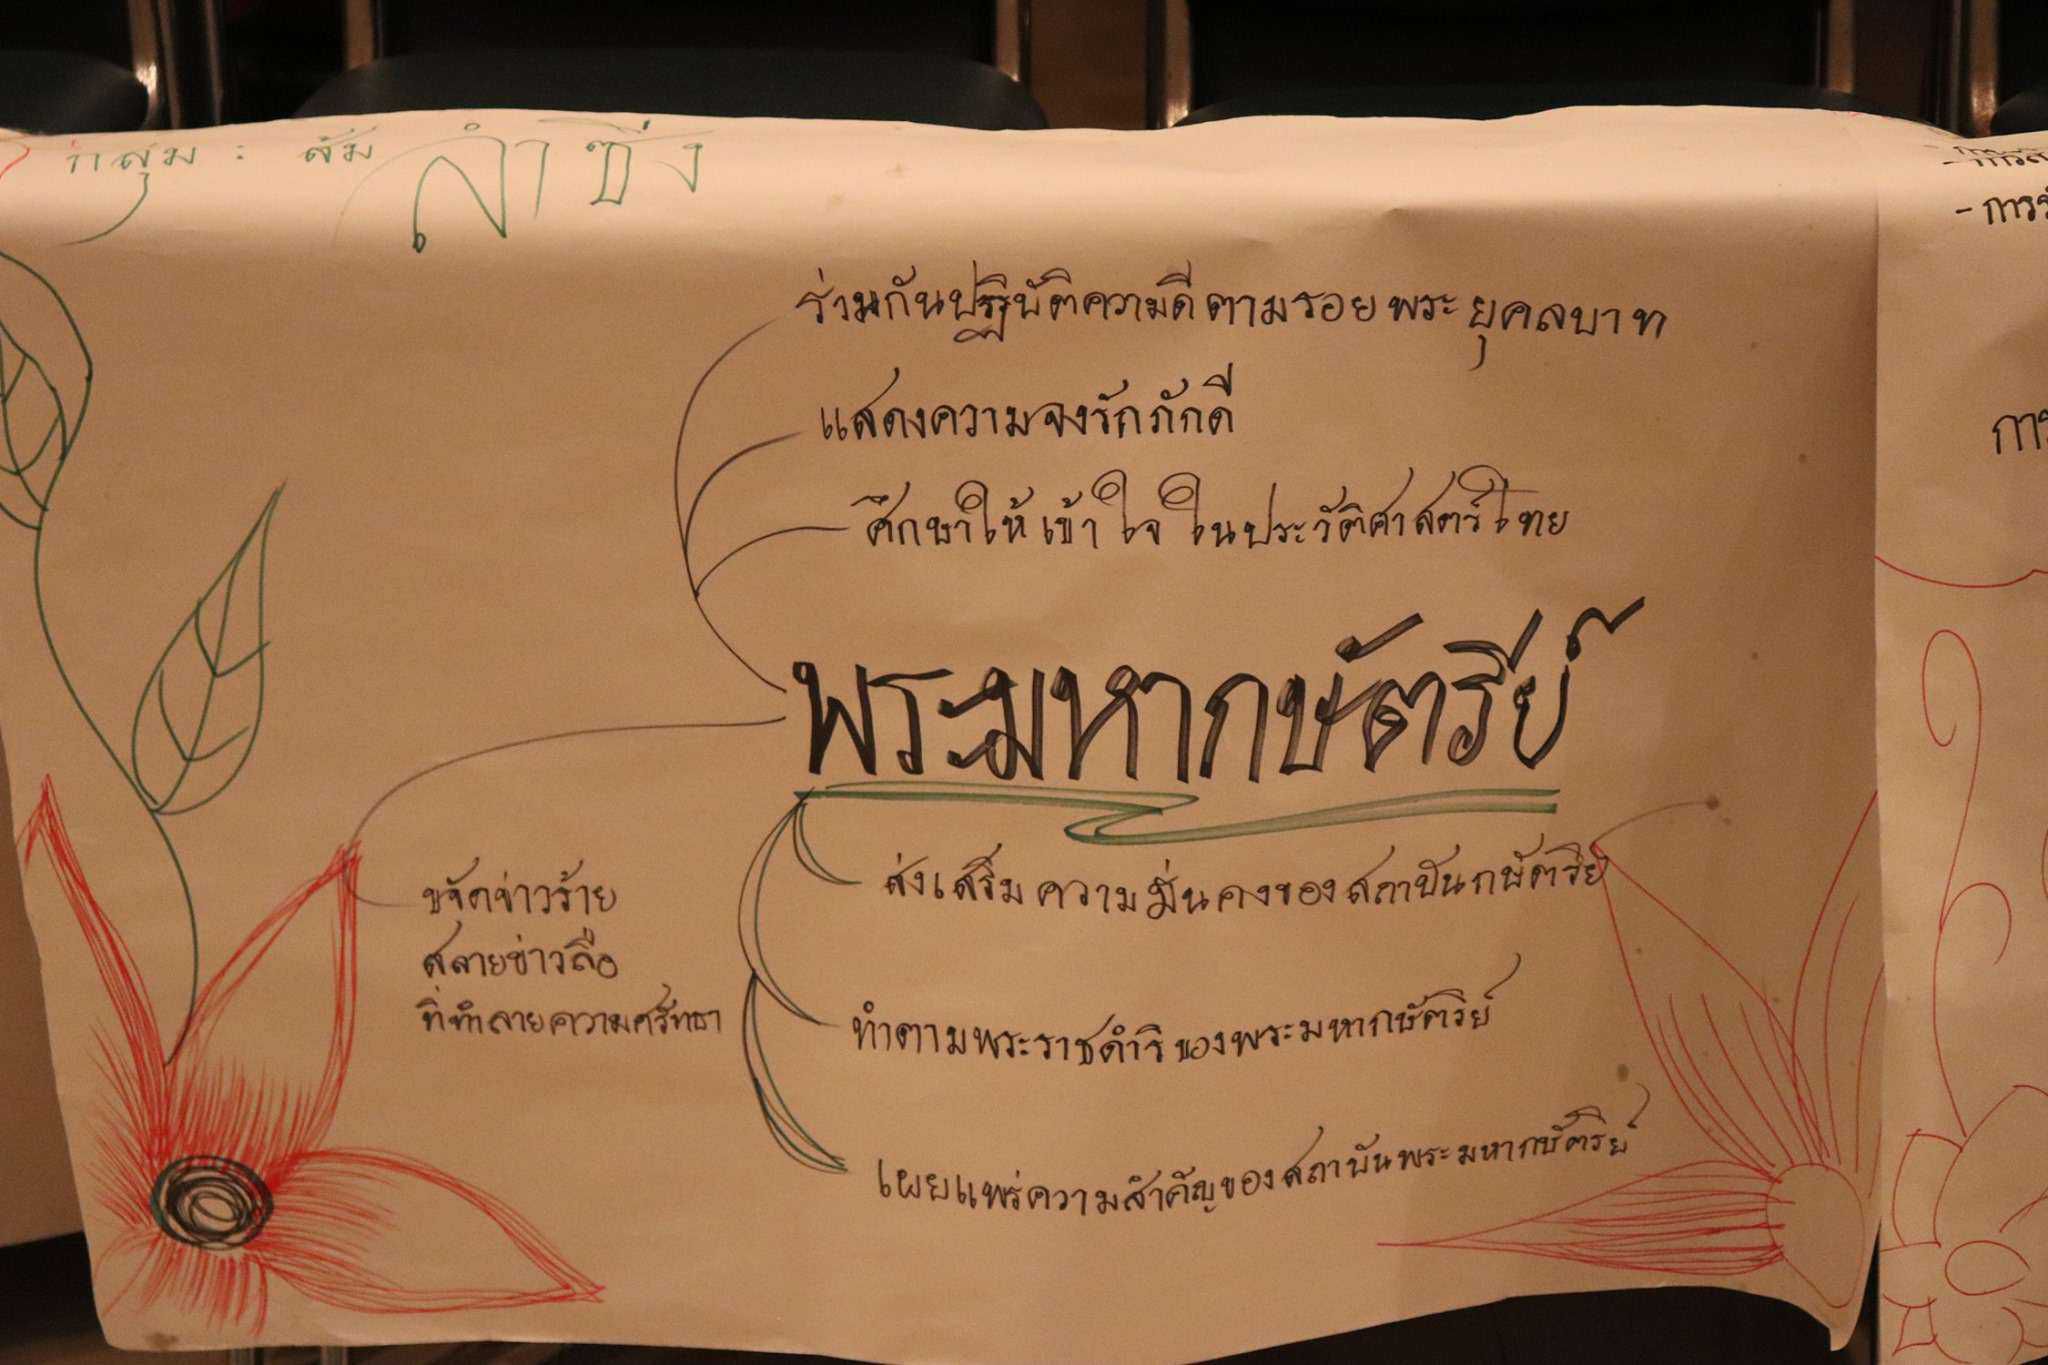 กลุ่ม : ส้ม ลำซิ่ง
ร่วมกันปฏิบัติความดีตามรอยพระยุคลบาท
แสดงความจงรักภักดี
ศึกษาให้เข้าใจในประวัติศาสตร์ไทย
พระมหากษัตริย์
ส่งเสริมความมั่นคงของสถาบันกษัตริย์
ขจัดข่าวร้าย
สลายข่าวลือ
ที่ทำลายความศรัทธา
ทำตามพระราชดำริของพระมหากษัตริย์
เผยแพร่ความสำคัญของสถาบันพระมหากษัตริย์